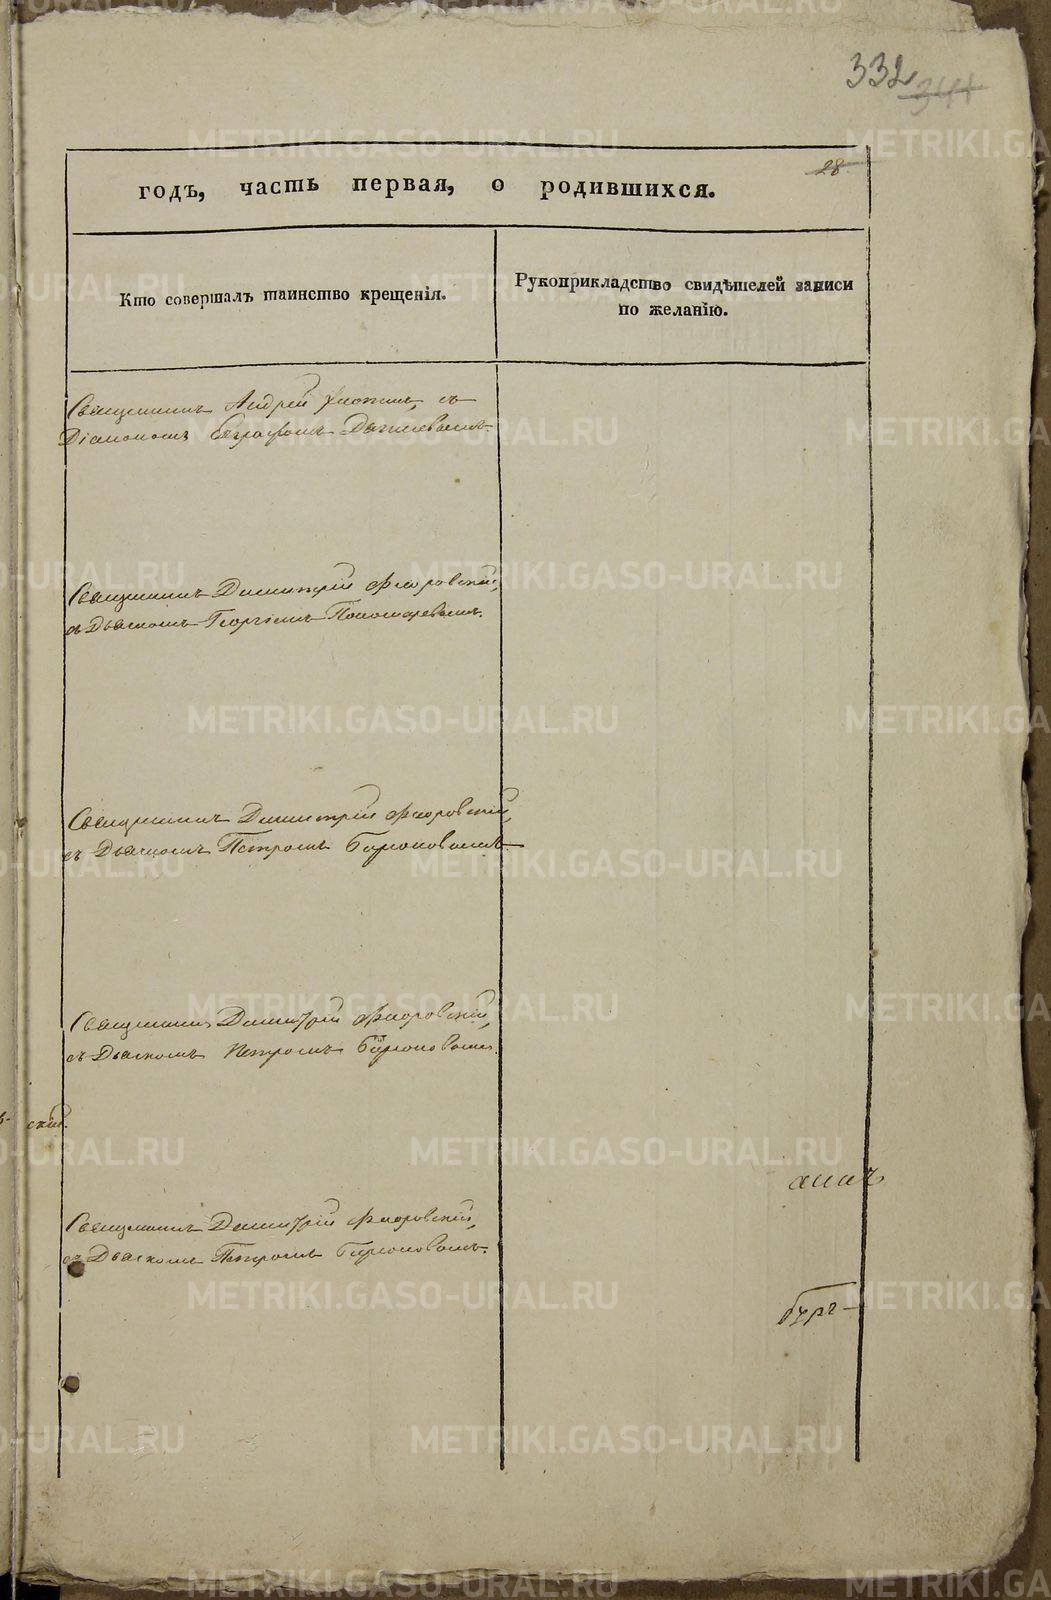 332
341
28
годъ, часть первая, о родившихся.
Кто совершалъ таинство крещенія.
Рукоприкладство свидѣтелей записи
по желанію.
Священникъ Андрей съ
Діакономъ Евграфомъ
Священникъ Димитрій Флоровскій,
съ Дьячкомъ Георгіемъ Пономаревымъ.
Священникъ Димитрій Флоровскій,
съ Дьячкомъ Петромъ
Священникъ Димитрій Флоровскій,
съ Дьячкомъ Петромъ
скій.
Священникъ Димитрій Флоровскій,
съ Дьячкомъ Петромъ
бург-
METRIKI.GASO-URAL.RU